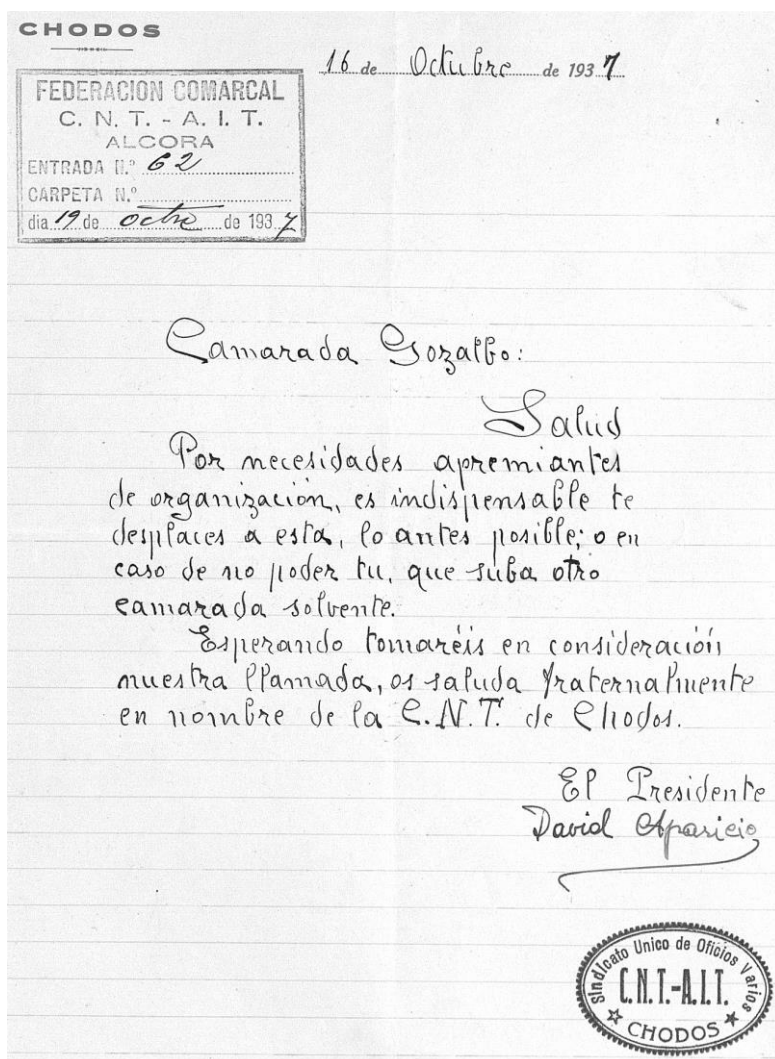 CHODOS
16 de Octubre de 1937
FEDERACION COMARCAL
C. N. T. - A. I. T.
ALCORA
ENTRADA N.º 62
CARPETA N.º
dia 19 de octre de 1937
Camarada Gozalbo:
Salud
Por necesidades apremiantes
de organización, es indispensable te
desplaces a esta, lo antes posible; o en
caso de no poder tu, que suba otro
camarada solvente.
Esperando tomaréis en consideración
nuestra llamada, os saluda fraternalmente
en nombre de la C.N.T. de Chodos.
El Presidente
David Aparicio
Sindicato Unico de Oficios Varios
C.N.T.-A.I.T.
CHODOS